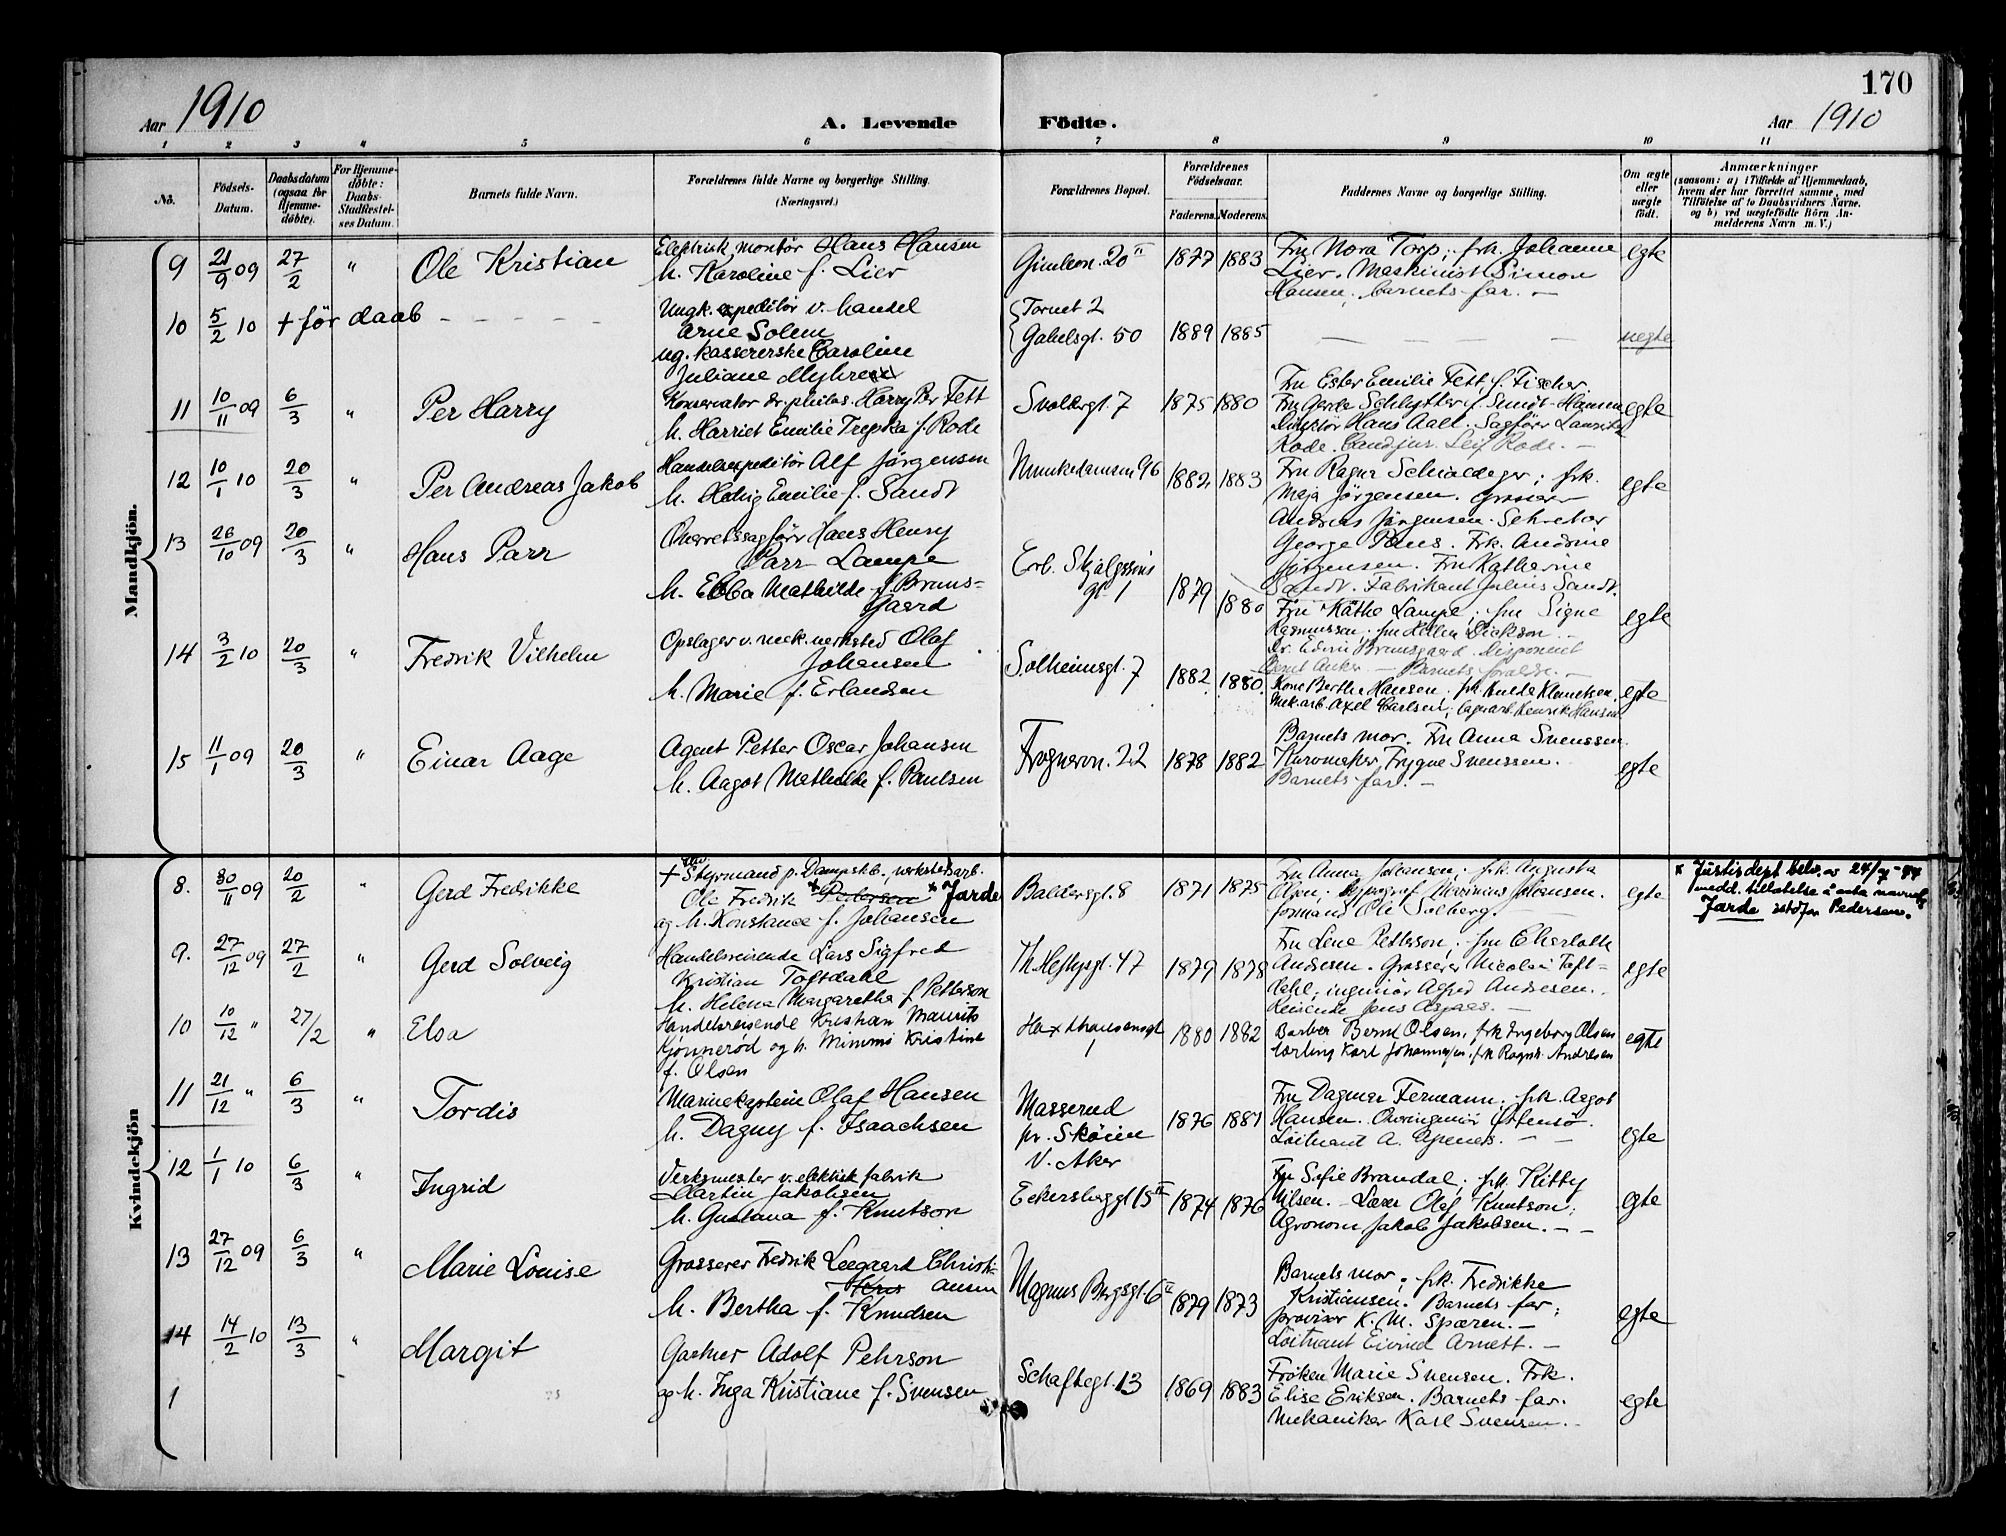 170
Aar 1910
A. Levende
Födte.
Aar 1910
1 2 3 4 5 6 7 8 9 10 11
No.
Födsels-
Datum.
Daabsdatum
(ogsaa for
Hjemme-
döbte).
For Hjemme-
döbte:
Daabs-
Stadfæstel-
ses Datum.
Barnets fulde Navn.
Forældrenes fulde Navne og borgerlige Stilling.
(Næringsvei.)
Forældrenes Bopæl.
Forældrenes
Födselsaar.
Faderens. Moderens.
Faddernes Navne og borgerlige Stilling.
Om ægte
eller
uægte
födt.
Anmærkninger
(saasom: a) i Tilfælde af Hjemmedaab,
hvem der har forrettet samme, med
Tilföielse af to Daabsvidners Navne.
og b) ved uægtefödte Börn An-
melderens Navn m. V.)
Mandkjön.
9 21/9 09 27/2 " Ole Kristian
Elektrisk montør Hans Hansen
h. Karoline f. Lier
Gimleon. 20 II 1877 1883
Fru Nora Torp; frk. Johanne
Lier. Maskinist Simon
Hansen; barnets far. —
egte
10 5/2 10 + før daab - - - - -
Ungk. expeditør v. handel
Arne Solem
ug. kassererske Caroline
Juliane Myhre
Tornet 2
Gabelsgt. 50 1889 1885
— — — —
uegte
11 10/11 09 6/3 " Per Harry
Konservator dr. philos. Harry Per Fett
h. Harriet Emilie Trepka f. Rode
Svoldergt. 7 1875 1880
Fru Ester Emilie Fett, f. Fischer,
Fru Gerda Schlytter f. Sundt-Hansen
Direktør Hans Aall. Sagfører Lauritz
Rode. Cand jur. Leif Rode. —
egte
12 10/1 10 20/3 " Per Andreas Jakob
Handelsexpeditør Alf Jørgensen
h. Hedvig Emilie f. Sandt
Munkedamsvn 96 1882 1883
Fru Ragna Schialdager; frk.
Maja Jørgensen. Grosserer
Andreas Jørgensen. Sekretær
George Pens. Frk. Andrine
Jørgensen. Fru Katherine
Sandt. Fabrikant Julius Sandt.
egte
13 26/10 09 20/3 " Hans Parr
Overretssagfører Hans Henry
Parr Lampe
h. Ebba Mathilde f. Bruns-
gaard
Erl. Skjalgssøns
gt 1 1879 1880
Fru Käthe Lampe; fru Signe
Rasmussen; fru Hellen Dickson. -
Dr. Edvin Brunsgaard. Disponent
Bernt Anker. — Barnets foreldre. —
egte
14 3/2 10 20/3 " Fredrik Vilhelm
Opslager v. mek. verksted Olaf
Johansen
h. Marie f. Erlandsen
Solheimsgt. 7 1882 1880
Kone Berthe Hansen; frk. Hulda Klemetsen.
Mek. arb. Axel Carlsen; lagerarb. Henrik Hansen
egte
15 11/1 09 20/3 " Einar Aage
Agent Petter Oscar Johansen
h. Aagot Mathilde f. Paulsen
Frognervn. 22 1878 1882
Barnets mor. Fru Anna Svenssen.
Kurvmaker Trygve Svenssen.
Barnets far. —
egte
Kvindekjön
8. 30/11 09 20/2 " Gerd Fredrikke
+ Styrmand p. Dampskb. verkstedarb.
Ole Fredrik Pedersen x Jarde
og h. Konstance f. Johansen
Baldersgt. 8 1871 1875
Fru Anna Johansen; frk. Augusta
Olsen; typograf Marinius Johansen.
formand Ole Solberg. —
egte
x Justisdept. bev. av 24/7-44
medd. tillatelse i anta navnet
Jarde istdfor Pedersen.
9. 27/12 09 27/2 " Gerd Solveig
Handelsreisende Lars Sigfred
Kristian Toftdahl
h. Helena Margaretha f. Petterson
Th. Heftysgt. 47 1879 1878
Fru Lene Petterson; fru Charlotte
Andresen. Grosserer Nicolai Toft-
dahl; ingeniør Alfred Andresen.
Reisende Jens Aspaas. —
egte
10 10/12 " 27/2 " Elsa
Handelsreisende Kristian Maurits
Kjønnerød og h. Mimmi Kristine
f. Olsen
Haxthausensgt
1 1880 1882
Barber Bernt Olsen, frk Ingeborg Olsen
lærling Karl Johannesen, frk Ragnh. Andresen
egte
11 21/12 " 6/3 " Tordis
Marinekaptein Olaf Hansen
h. Dagny f. Isaachsen
Masserud
pr. Skøien
V. Aker 1876 1881
Fru Dagmar Fermann. frk. Aagot
Hansen. Overingeniør Ostensø.
Løitnant A. Apenes. — —
egte
12 1/1 10 6/3 " Ingrid
Verksmester v. elektrisk fabrik
Martin Jakobsen
h. Gustava f. Knutson
Eckersbergt 15 II 1874 1876
Fru Sofie Brandal; frk. Kitty
Nilsen. - Lærer Olaf Knutson;
Agronom Jakob Jakobsen. — —
egte
13 27/12 09 6/3 " Marie Louise
Grosserer Fredrik Leegaard Christi-
ansen
h. Bertha f. Knudsen
Magnus Bergsgt. 6 II 1879 1873
Barnets mor; frk. Fredrikke
Kristiansen. Barnets far;
provisor K. M. Spæren. —
Løitnant Eivind Arnett. —
egte
14 14/2 10 13/3 " Margit
Gartner Adolf Pehrson
og h. Inga Kristiane f. Svensen
Schaftegt. 13 1869 1883
Frøken Marie Svensen. Frk.
Elise Eriksen. Barnets far.
Mekaniker Karl Svensen. -
egte
1